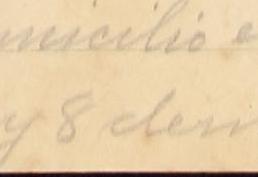 micilio e
y 8 den